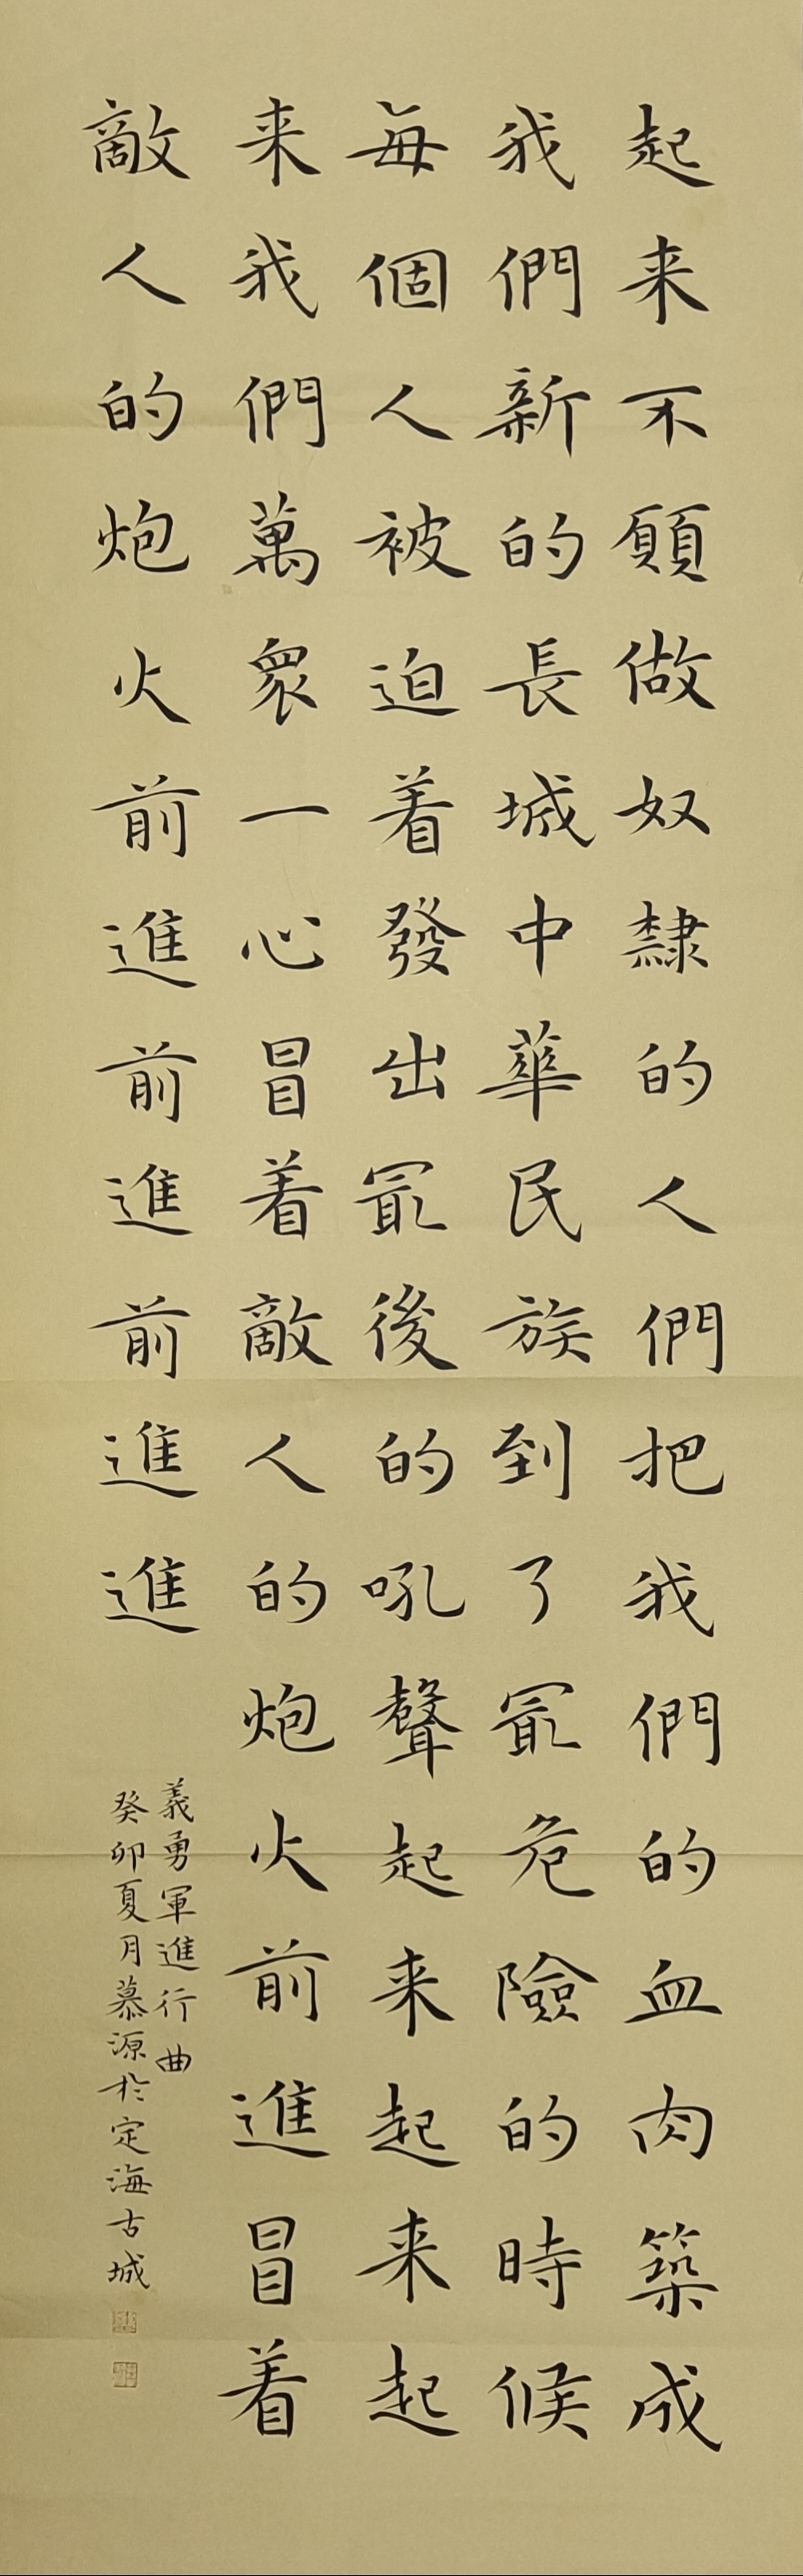 起来不願做奴隸的人們把我們的血肉築成
我們新的長城中華民族到了冣危險的時候
每個人被迫着發出冣後的吼聲起来起来起
来我們萬衆一心冒着敵人的炮火前進冒着
敵人的炮火前進前進前進進
義勇軍進行曲
癸卯夏月慕源於定海古城